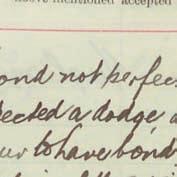 above mentioned accepted
ond not perfec
ected a dodge, a
our to have bond